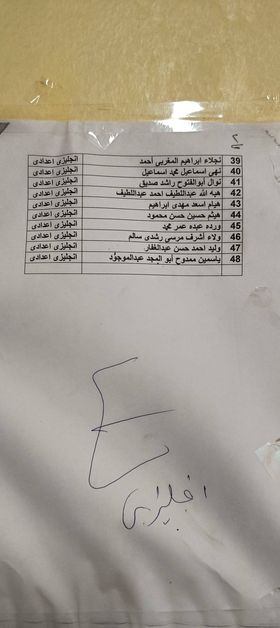 39 نجلاء ابراهيم المغربى أحمد انجليزى اعدادى
40 نهى اسماعيل محمد اسماعيل انجليزى اعدادى
41 نوال أبوالفتوح راشد صديق انجليزى اعدادى
42 هبه الله عبداللطيف احمد عبداللطيف انجليزى اعدادى
43 هيام اسعد مهدى ابراهيم انجليزى اعدادى
44 هيثم حسين حسن محمود انجليزى اعدادى
45 ورده عبده عمر محمد انجليزى اعدادى
46 ولاء أشرف مرسى رشدى سالم انجليزى اعدادى
47 وليد احمد حسن عبدالغفار انجليزى اعدادى
48 ياسمين ممدوح أبو المجد عبدالموجود انجليزى اعدادى
انجليزى